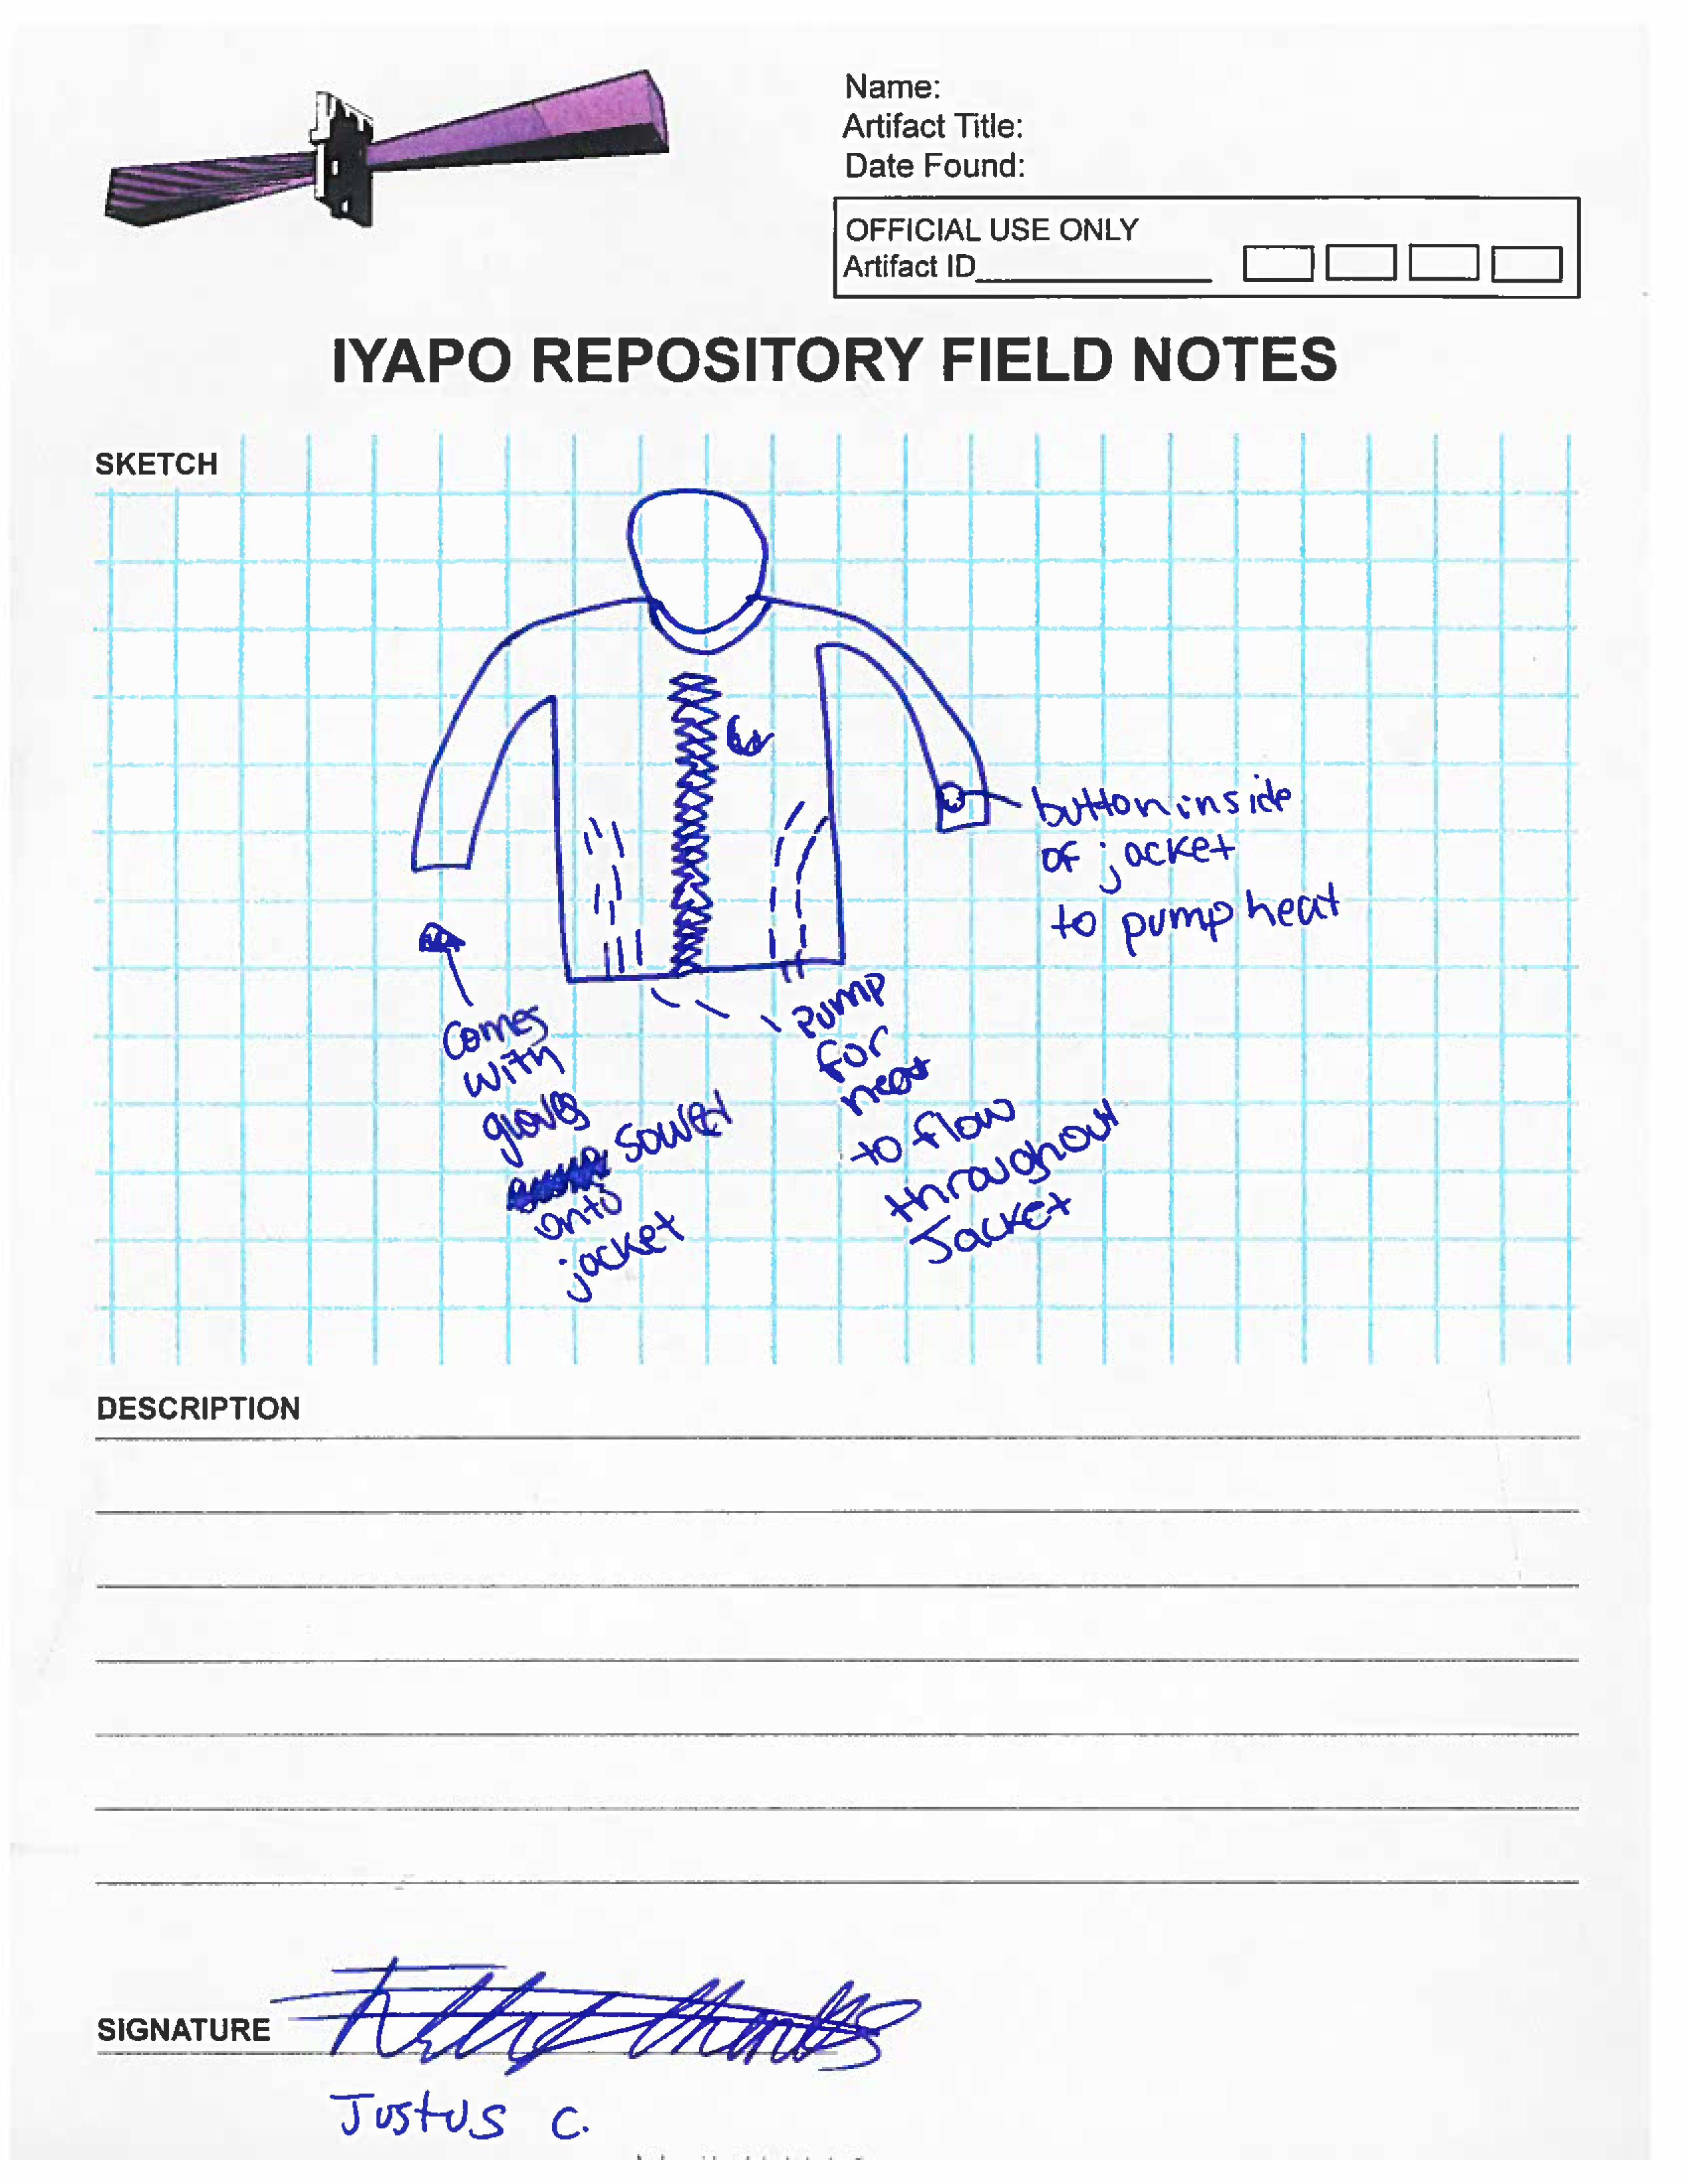 Name:
Artifact Title:
Date Found:
OFFICIAL USE ONLY
Artifact ID
IYAPO REPOSITORY FIELD NOTES
SKETCH
button inside
of jacket
to pump heat
comes
with
gloves
sowed
onto
jacket
pump
for
heat
to flow
throughout
Jacket
DESCRIPTION
SIGNATURE
Justus C.